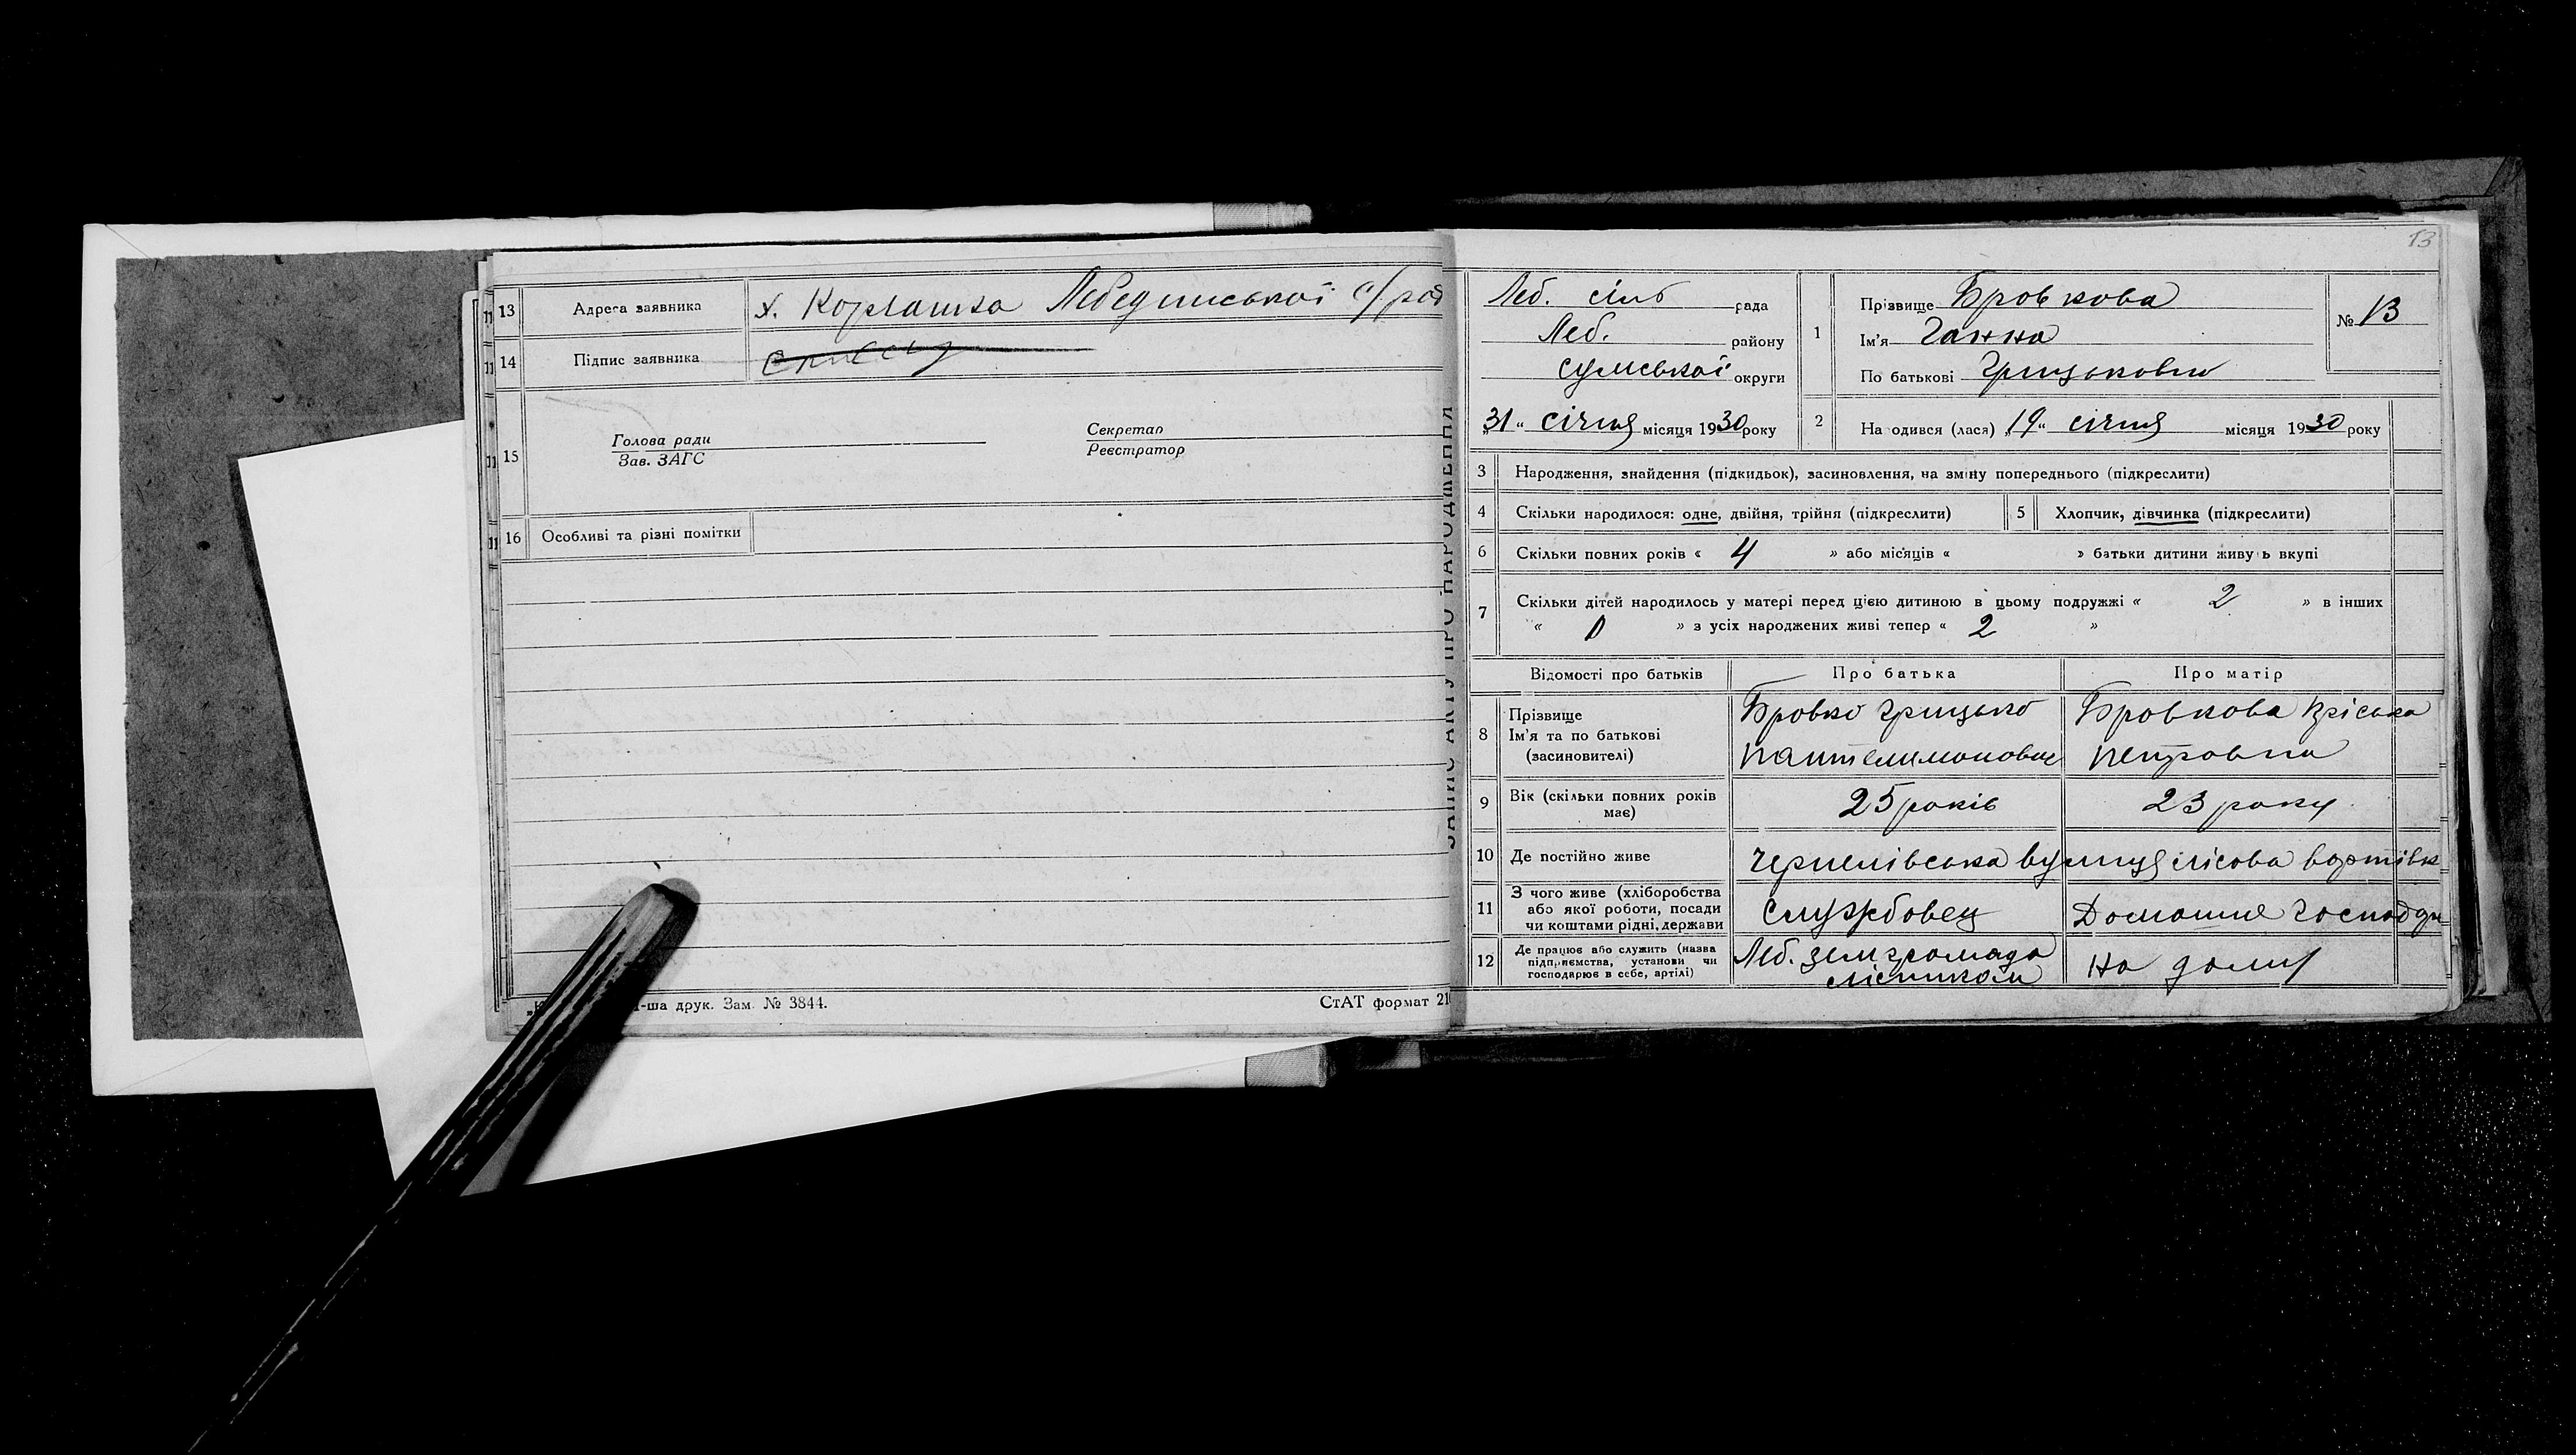 13 Адреса заявника х. Корлашка Лебединської с/рад
14 Підпис заявника
15 Голова ради Секретар
Зав. ЗАГС Реєстратор
16 Особливі та різні помітки
1-ша друк. Зам. № 3844.
СтАТ формат 21
ЗАПИС АКТУ ПРО НАРОДЖЕННЯ
13
Леб. сільрада
Леб. району
Сумської округи
„31“ січня місяця 1930 року
1 Прізвище Бровкова
Ім'я Ганна
По батькові Грицьковна
№ 13
2 На одився (лася) „19“ січня місяця 1930 року
3 Народження, знайдення (підкидьок), засиновлення, на зміну попереднього (підкреслити)
4 Скільки народилося: одне, двійня, трійня (підкреслити)
5 Хлопчик, дівчинка (підкреслити)
6 Скільки повних років « 4 » або місяців « » батьки дитини живуть вкупі
7 Скільки дітей народилось у матері перед цією дитиною в цьому подружжі « 2 » в інших
« 0 » з усіх народжених живі тепер « 2 »
Відомості про батьків Про батька Про матір
8 Прізвище
Ім'я та по батькові
(засновителі)
Бровко Грицько
Пантелимонович
Бровкова Пріська
Петровна
9 Вік (скільки повних років
має)
25 років
23 року
10 Де постійно живе
вулиця лісова
11 З чого живе (хліборобства
або якої роботи, посади
чи коштами рідні, держави
Службовец
Домашнє господар
12 Де працює або служить (назва
підприємства, установи чи
господарює в себе, артілі)
Леб.земгромада
лісником
на дому